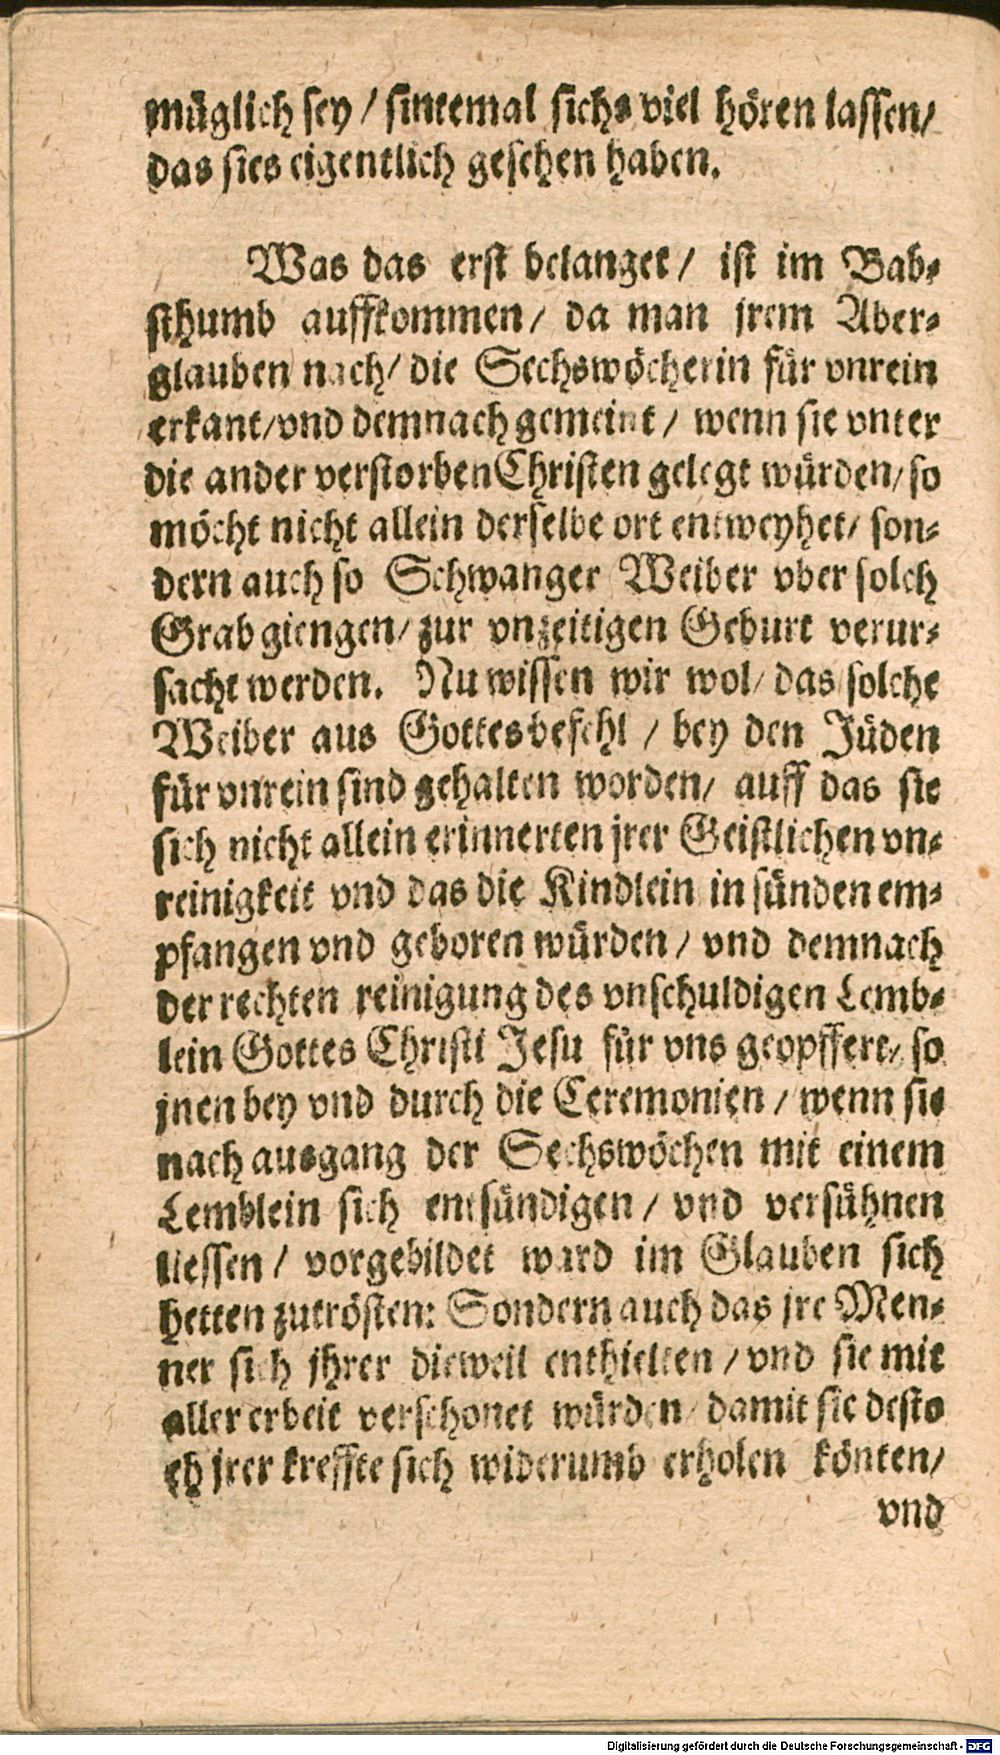 müglich sey / sintemal sichs viel hören lassen/
das sies eigentlich gesehen haben.
Was das erst belanget / ist im Bab-
sthumb auffkommen / da man jrem Aber-
glauben nach / die Sechswöcherin für vnrein
erkant/vnd demnach gemeint / wenn sie vnter
die ander verstorben Christen gelegt würden/ so
möcht nicht allein derselbe ort entweyhet/ son-
dern auch so Schwanger Weiber vber solch
Grab giengen/ zur vnzeitigen Geburt verur-
sacht werden. Nu wissen wir wol/ das solche
Weiber aus Gottes befehl / bey den Jüden
für vnrein sind gehalten worden/ auff das sie
sich nicht allein erinnerten jrer Geistlichen vn-
reinigkeit vnd das die Kindlein in sünden em-
pfangen vnd geboren würden / vnd demnach
der rechten reinigung des vnschuldigen Lemb-
lein Gottes Christi Jesu für vns geopffert/ so
jnen bey vnd durch die Ceremonien / wenn sie
nach ausgang der Sechswöchen mit einem
Lemblein sich entsündigen / vnd versühnen
liessen / vorgebildet ward im Glauben sich
hetten zutrösten: Sondern auch das jre Men-
ner sich jhrer dieweil enthielten / vnd sie mit
aller erbeit verschonet würden/ damit sie desto
eh jrer kreffte sich widerumb erholen könten/
vnd
Digitalisierung gefördert durch die Deutsche Forschungsgemeinschaft - DFG